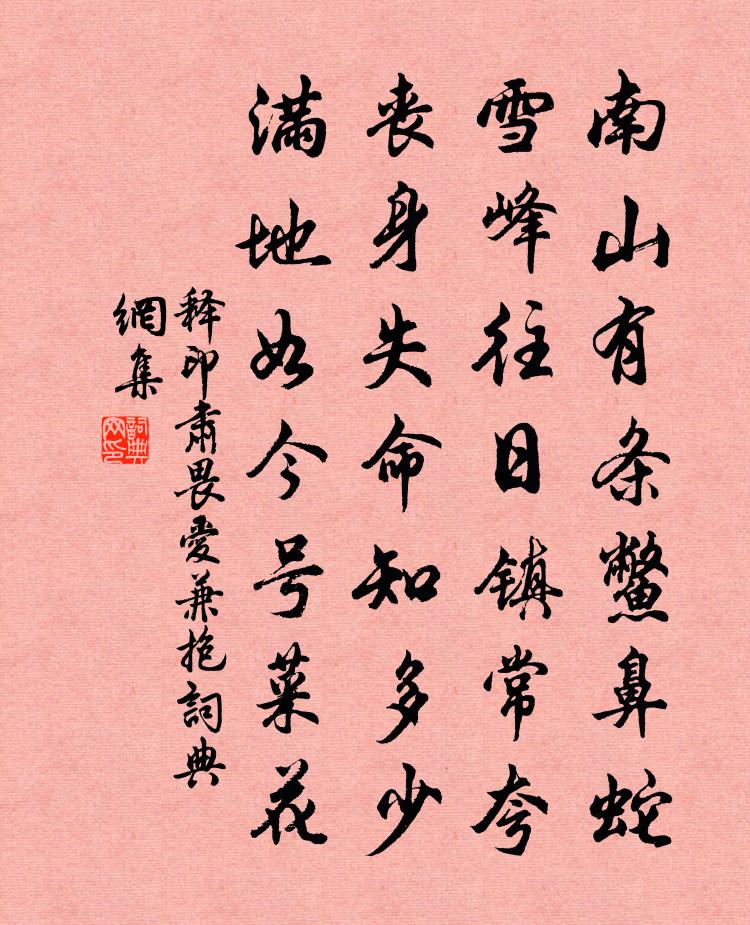 南山有条鳖鼻蛇
雪峰往日镇常夸
丧身失命知多少
满地如今号菜花
释印肃畏爱兼抱词典
網集
詞典
网印